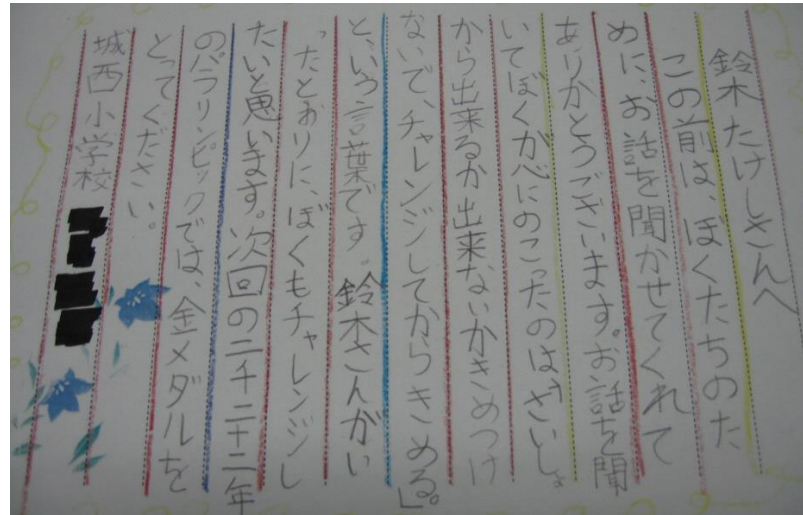 鈴木たけしさんへ
この前は、ぼくたちのた
めに、お話を聞かせてくれて
ありがとうございます。お話を聞
いてぼくが心にのこったのは「さいしょ
から出来るか出来ないかきめつけ
ないで、チャレンジしてからきめる。」
と、いう言葉です。鈴木さんがい
ったとおりに、ぼくもチャレンジし
たいと思います。次回の二千二十二年
のパラリンピックでは、金メダルを
とってください。
城西小学校